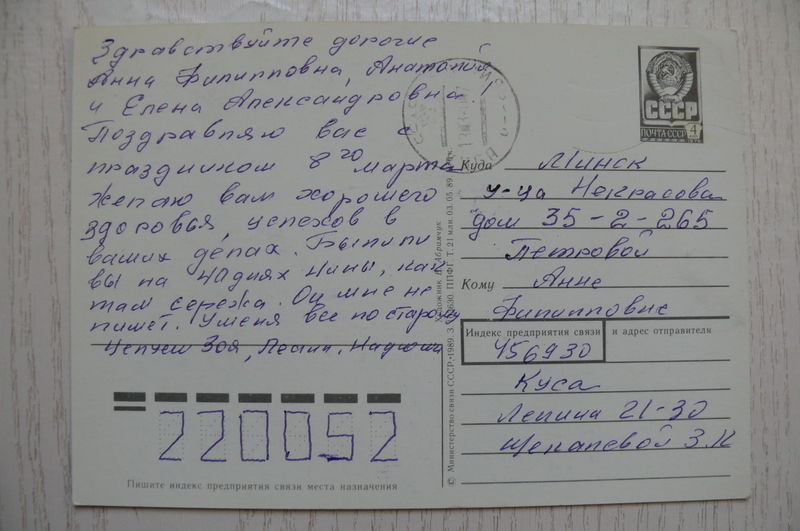 Здравствуйте дорогие
Анна Филипповна, Анатолий
и Елена Александровна!
Поздравляю вас с
праздником 8го марта
желаю вам хорошего
здоровья, успехов в
ваших делах. Были ли
вы на Надиях Нины, как
там сережа. Он мне не
пишет. Уменя все по старому
Целуем Зоя, Надюша
220052
Пишите индекс предприятия связи места назначения
© Министерство связи СССР. 1989. З. ППФГ. Т. 21 млн. 03.05.89. 4 к.
Художник Абрамчук
СССР
ПОЧТА СССР 4
Куда Минск
у-ца Некрасова
дом 35-2-265
Петровой
Кому Анне
Филипповне
Индекс предприятия связи и адрес отправителя
456930
Куса
Ленина 21-30
Щекалевой З.К